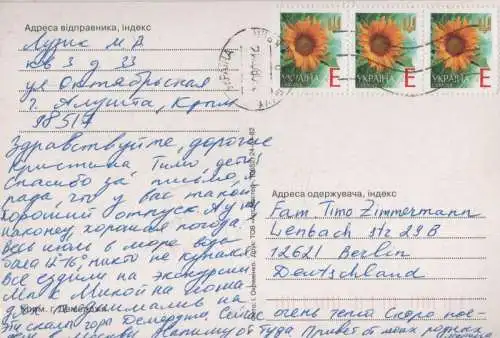 Адреса відправника, індекс
Лузик М А
кв 3 д 33
ул Октябрьская
г. Алушта, Крым
98517
УКРАЇНА Е
УКРАЇНА Е
УКРАЇНА Е
Здравствуйте, дорогие
Кристина Тимо, дети,
Спасибо за письмо, я
рада, что у вас такой
хороший отпуск. А у нас
наконец хорошая погода.
весь июль в море вода
была 12-16, никто не купался
все ездили на экскурсии
Мы с Микой на лоша
дях поднимались на
эту скалу гора Демерджи, Сейчас очень тепло Скоро пое-
Москву Напишу оттуда Привет от моих родных
Крим. г. Демерджи
Адреса одержувача, індекс
Fam. Timo Zimmermann
Lenbach str 29B
12621 Berlin
Deutschland